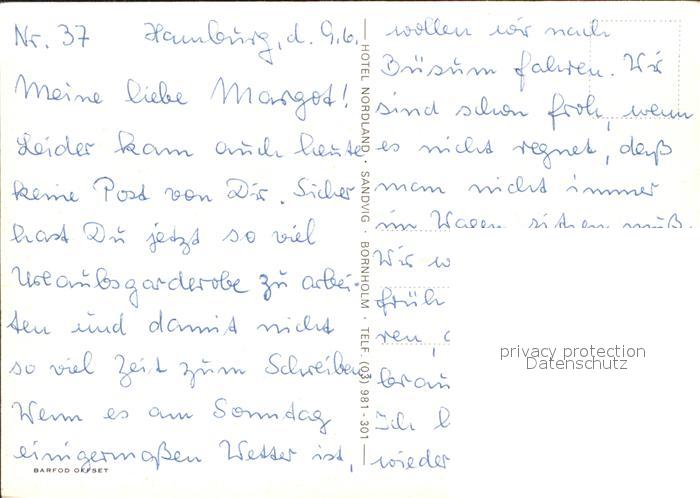 Nr. 37 Hamburg, d. 9.6.
Meine liebe Margot!
Leider kam auch heute
keine Post von Dir. Sicher
hast Du jetzt so viel
Urlaubsgarderobe zu arbei-
ten und damit nicht
so viel Zeit zum Schreiben.
Wenn es am Sonntag
einigermaßen Wetter ist,
BARFOD OFFSET
HOTEL NORDLAND · SANDVIG · BORNHOLM · TELF. (03) 981-301
wollen wir nach
Büsum fahren. Wir
sind schon froh, wenn
es nicht regnet, daß
man nicht immer
im Wagen sitzen muß.
Wir w
früh
ren,
Ich
wieder
privacy protection
Datenschutz